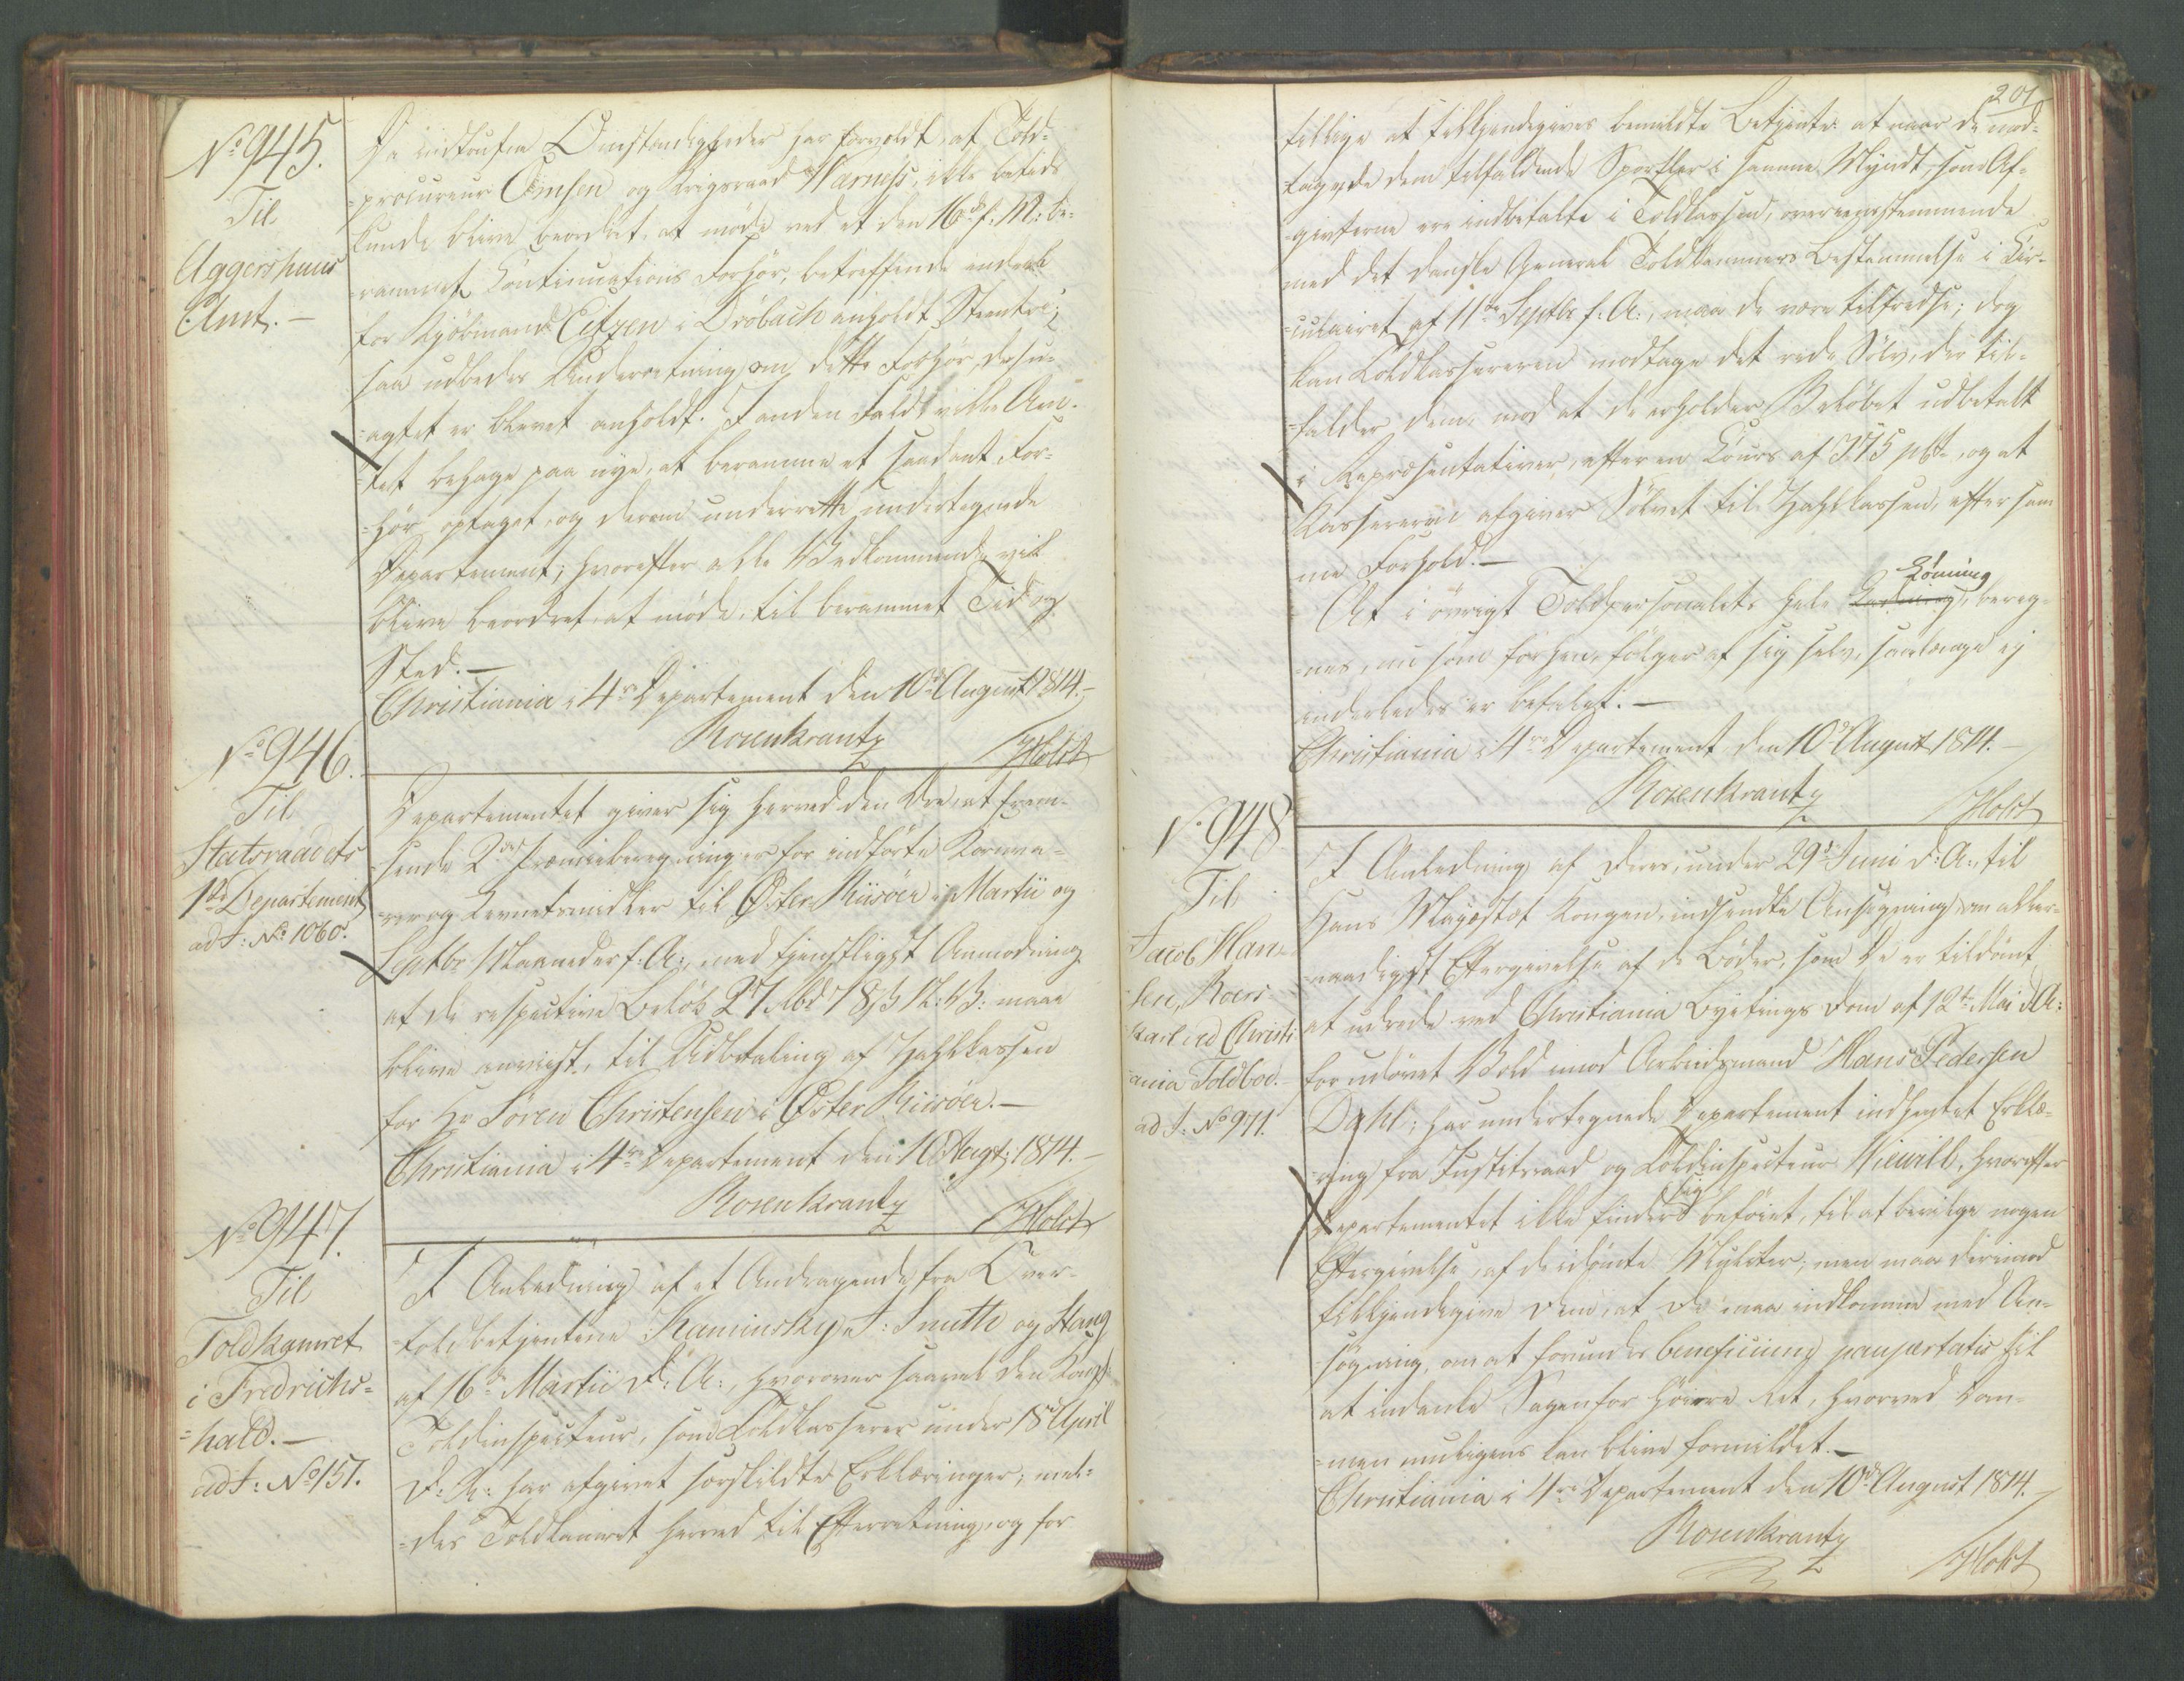 No 945.
Til
Aggershuus
Amt. —
Da indtrufne Omstændigheder har forvoldt, at Told-
-procureur Omsen og Krigsraad Warness, ikke betids
kunde blive beordret, at møde ved et den 16de f: M: be-
-rammet Continuations Forhör, betreffende endeel
for Kjøbmand Eitzen i Dröbach anholdt Steentöi;
saa udbedes Underretning om dette Forhör, desu-
-agtet er blevet anholdt. I anden Fald vilde Am-
-tet behage paa nye, at beramme et saadant For-
-hör optaget, og derom underrette undertegnede
Departement; hvorefter alle Vedkommende vil
blive beordret, at møde, til berammet Tid og
Sted. —
Christiania i 4de Departement den 10de August 1814. —
Rosenkrantz
Holst
No 946.
Til
Statsraadets
1ste Departement
ad J: No 1060.
Departementet giver sig herved den Ære, at frem-
-sende 2de Præmieberegninger for indförte Kornva-
-rer og Levnetsmidler til Öster Riisöer i Martii og
Septbr Maaneder f: A:, med tjenstligst Anmodning
at de respective Belöb 27 Rbd 78 s N: V: maae
blive anviist, til Udbetaling af Zahlkassen
for Hr Sören Christensen i Öster Riisöer. —
Christiania i 4de Departement den 10 Augt: 1814. —
Rosenkrantz
Holst
No 947.
Til
Toldkamret
i Fredrichs-
-hald. —
ad J: No 157.
I Anledning af et Andragende fra Over-
-toldbetjentene Kaminsky, J: Smith og Stang
af 16de Martii d: A:, hvorover saavel den Kongl:
Toldinspecteur, som Toldkasserer under 18de April
d: A: har afgivet særskildte Erklæringer; mel-
-des Toldkamret herved til Efterretning, og for
201
tillige at tilkjendegives bemeldte Betjente: at naar de mod-
-tage de dem tilfaldende Sportler i samme Myndt, som Af-
-givterne ere indbetalte i Toldkassen, overeensstemmende
med det danske General Toldkammers Bestemmelse i Cir-
-culairet af 11te Septbr f: A:, maa de være tilfredse; dog
kan Toldkassereren modtage det rede Sölv, der til-
-falder dem, mod at de erholder Belöbet udbetalt
i Repræsentativer, efter en Cours af 375 pCt, og at
Kassereren afgiver Sölvet til Zahlkassen, efter sam-
me Forhold. —
At i övrigt Toldpersonalets hele Lönning, bereg-
-nes, nu som forhen, fölger af sig selv, saalænge ej
anderledes er befalet. —
Christiania i 4de Departement den 10de August 1814. —
Rosenkrantz
Holst
No 948.
Til
Jacob Han-
sen, Roers-
karl ved Christi-
ania Toldbod.
ad J: No 971.
I Anledning af Deres, under 29de Juni d: A:, til
Hans Majestæt Kongen, indsendte Ansøgning om aller-
-naadigst Eftergivelse af de Böder, som De er tildömt
at udrede ved Christiania Byetings Dom af 12te Mai d A:
for udövet Vold imod Arbeidsmand Hans Pedersen
Dahl; har undertegnede Departement indhentet Erklæ-
-ring fra Justitsraad og Toldinspecteur Wiewill, hvorefter
Departementet ikke finder sig beföiet, til at bevilge nogen
Eftergivelse, af de idömte Mulcter; men maa derimod
tilkjendegive Dem, at De maa indkomme med An-
-søgning, om at forundes beneficium paupertatis til
at indanke Sagen for höiere Ret, hvorved Dom-
-men muligens kan blive formildet. —
Christiania i 4de Departement den 10de August 1814. —
Rosenkrantz
Holst